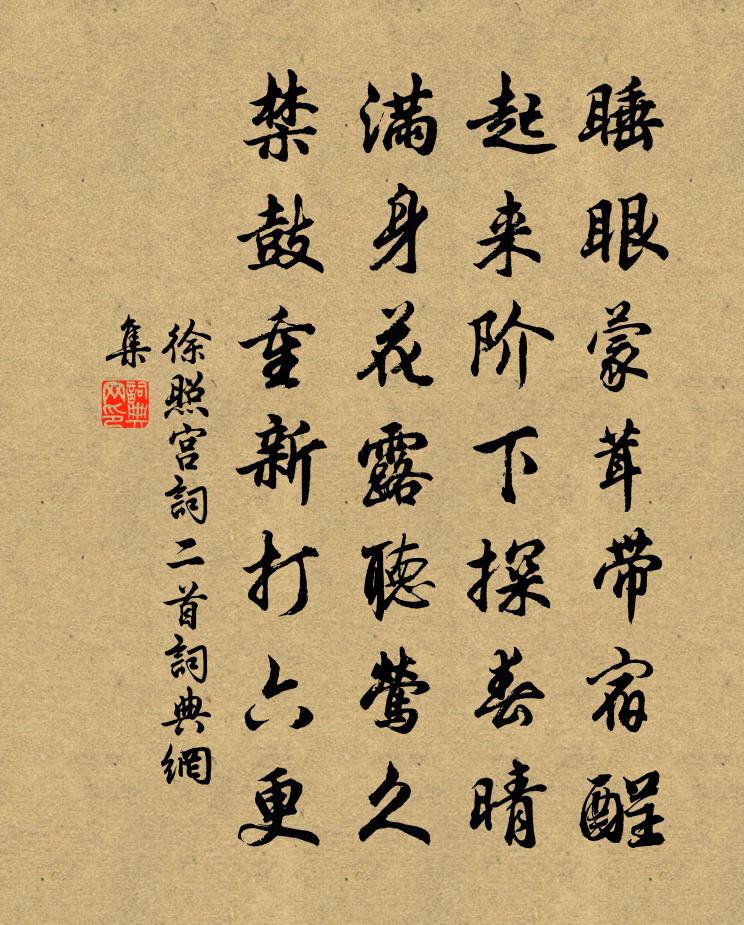 睡眼蒙茸带宿酲
起来阶下探春晴
满身花露聴莺久
禁鼓重新打六更
徐照宫詞二首詞典網
集
詞典
网印